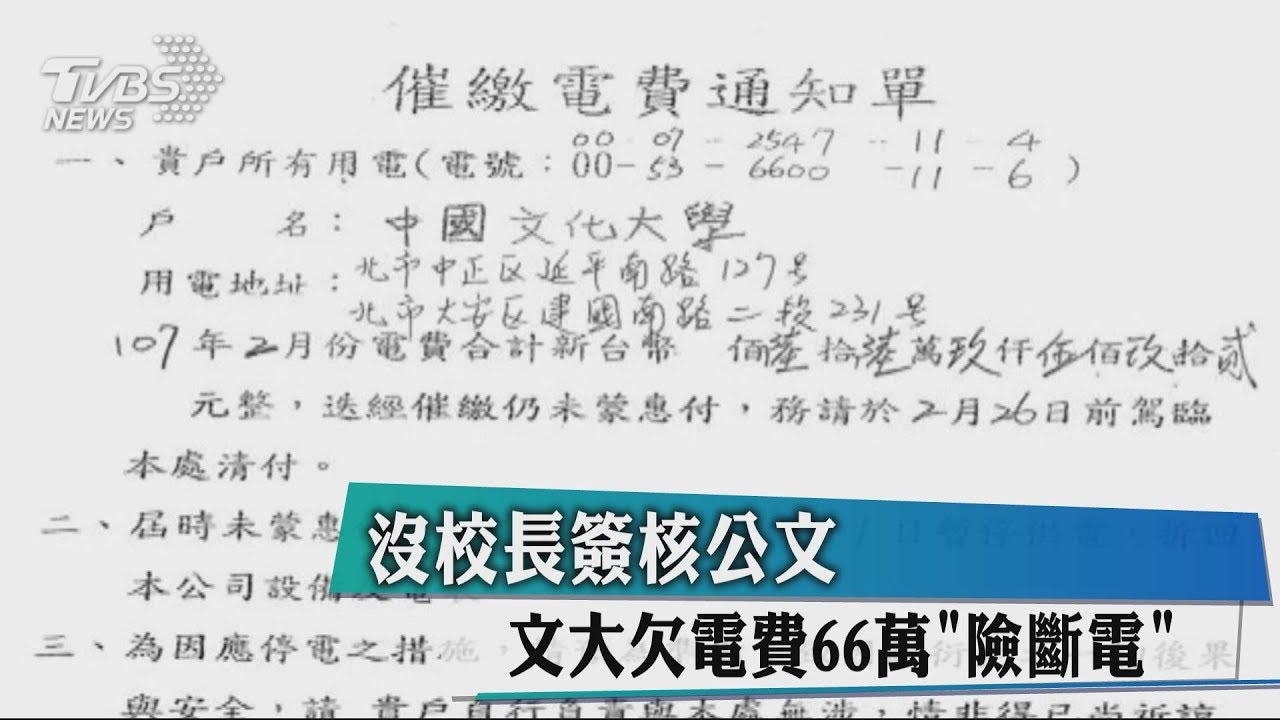 TVBS
NEWS
催繳電費通知單
00-07-2547-11-4
一、貴戶所有用電(電號：00-53-6600-11-6)
戶名：中國文化大學
北市中正区延平南路127号
用電地址：
北市大安区建國南路二段231号
107年2月份電費合計新台幣 佰陸拾陸萬玖仟伍佰玖拾貳
元整，迭經催繳仍未蒙惠付，務請於2月26日前駕臨
本處清付。
二、屆時未蒙惠 日暫停供電，拆回
本公司設備
三、為因應停電之措施， 後果
與安全，請 貴戶自行負責與本處無涉，情非得已尚祈諒
沒校長簽核公文
文大欠電費66萬"險斷電"